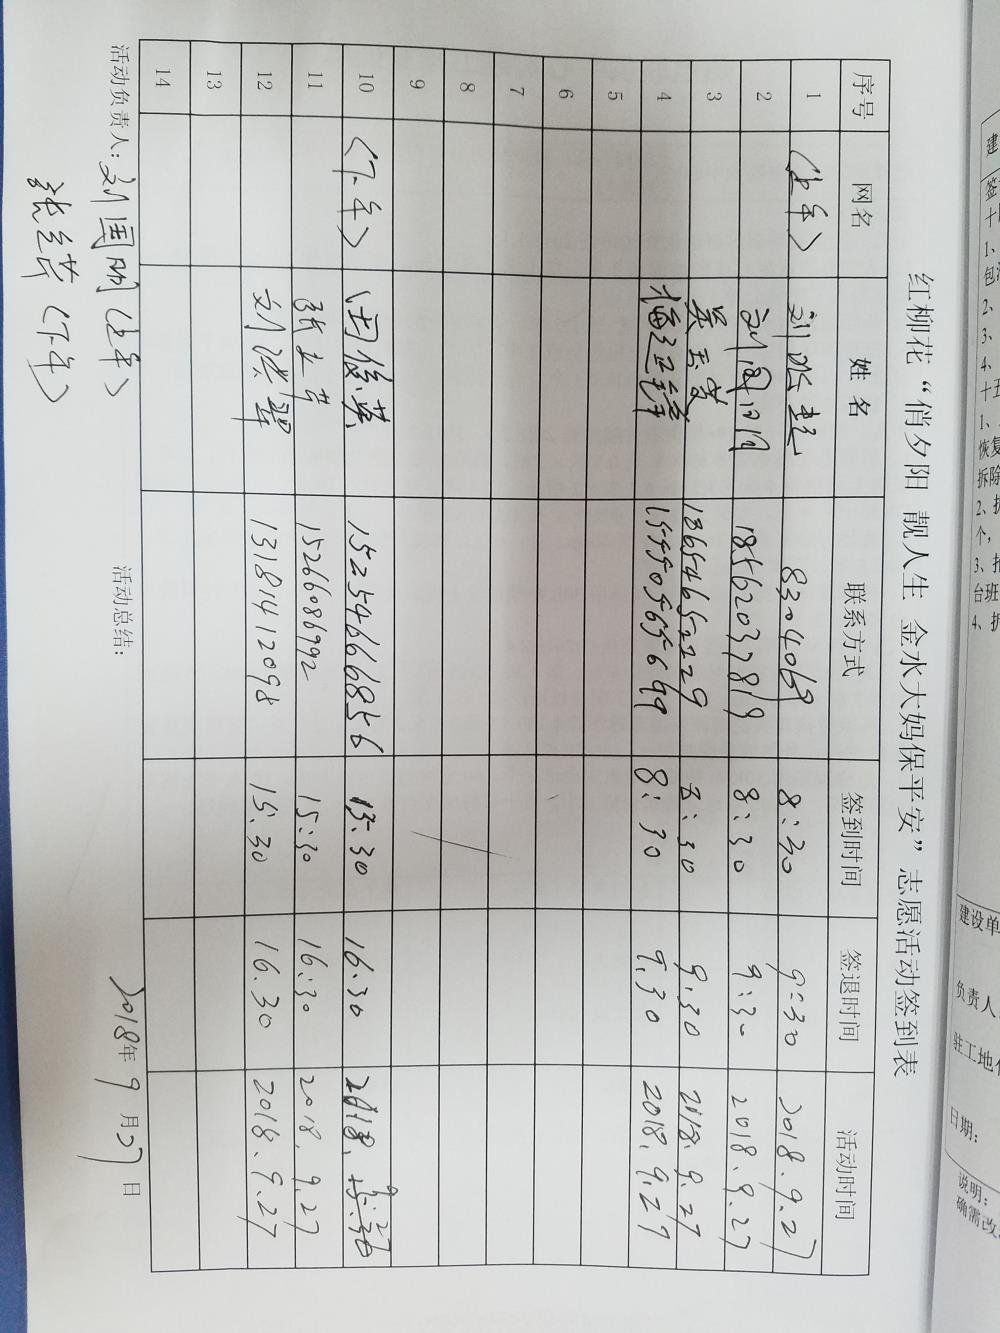 红柳花“俏夕阳 靓人生 金水大妈保平安”志愿活动签到表
序号 网名 姓名 联系方式 签到时间 签退时间 活动时间
1 (上午) 8304069 8:30 9:30 2018.9.27
2 18562037819 8:30 9:30 2018.9.27
3 吴玉芳 18654665229 8:30 9.30 2018.9.27
4 8:30 9.30 2018.9.27
5
6
7
8
9
10 (下午) 田俊英 15254666856 15:30 16.30 2018.9.27
11 15266086992 15:30 16:30 2018.9.27
12 刘洪翠 13181412098 15:30 16.30 2018.9.27
13
14
活动负责人:刘国明(上午) 活动总结: 2018年9月27日
(下午)
建
签
十
1、
包
2、
3、
4、
十五
1、
恢复
拆除
2、
个,
3、
台班
4、
建设单
负责人
驻工地
日期:
说明:
确需改